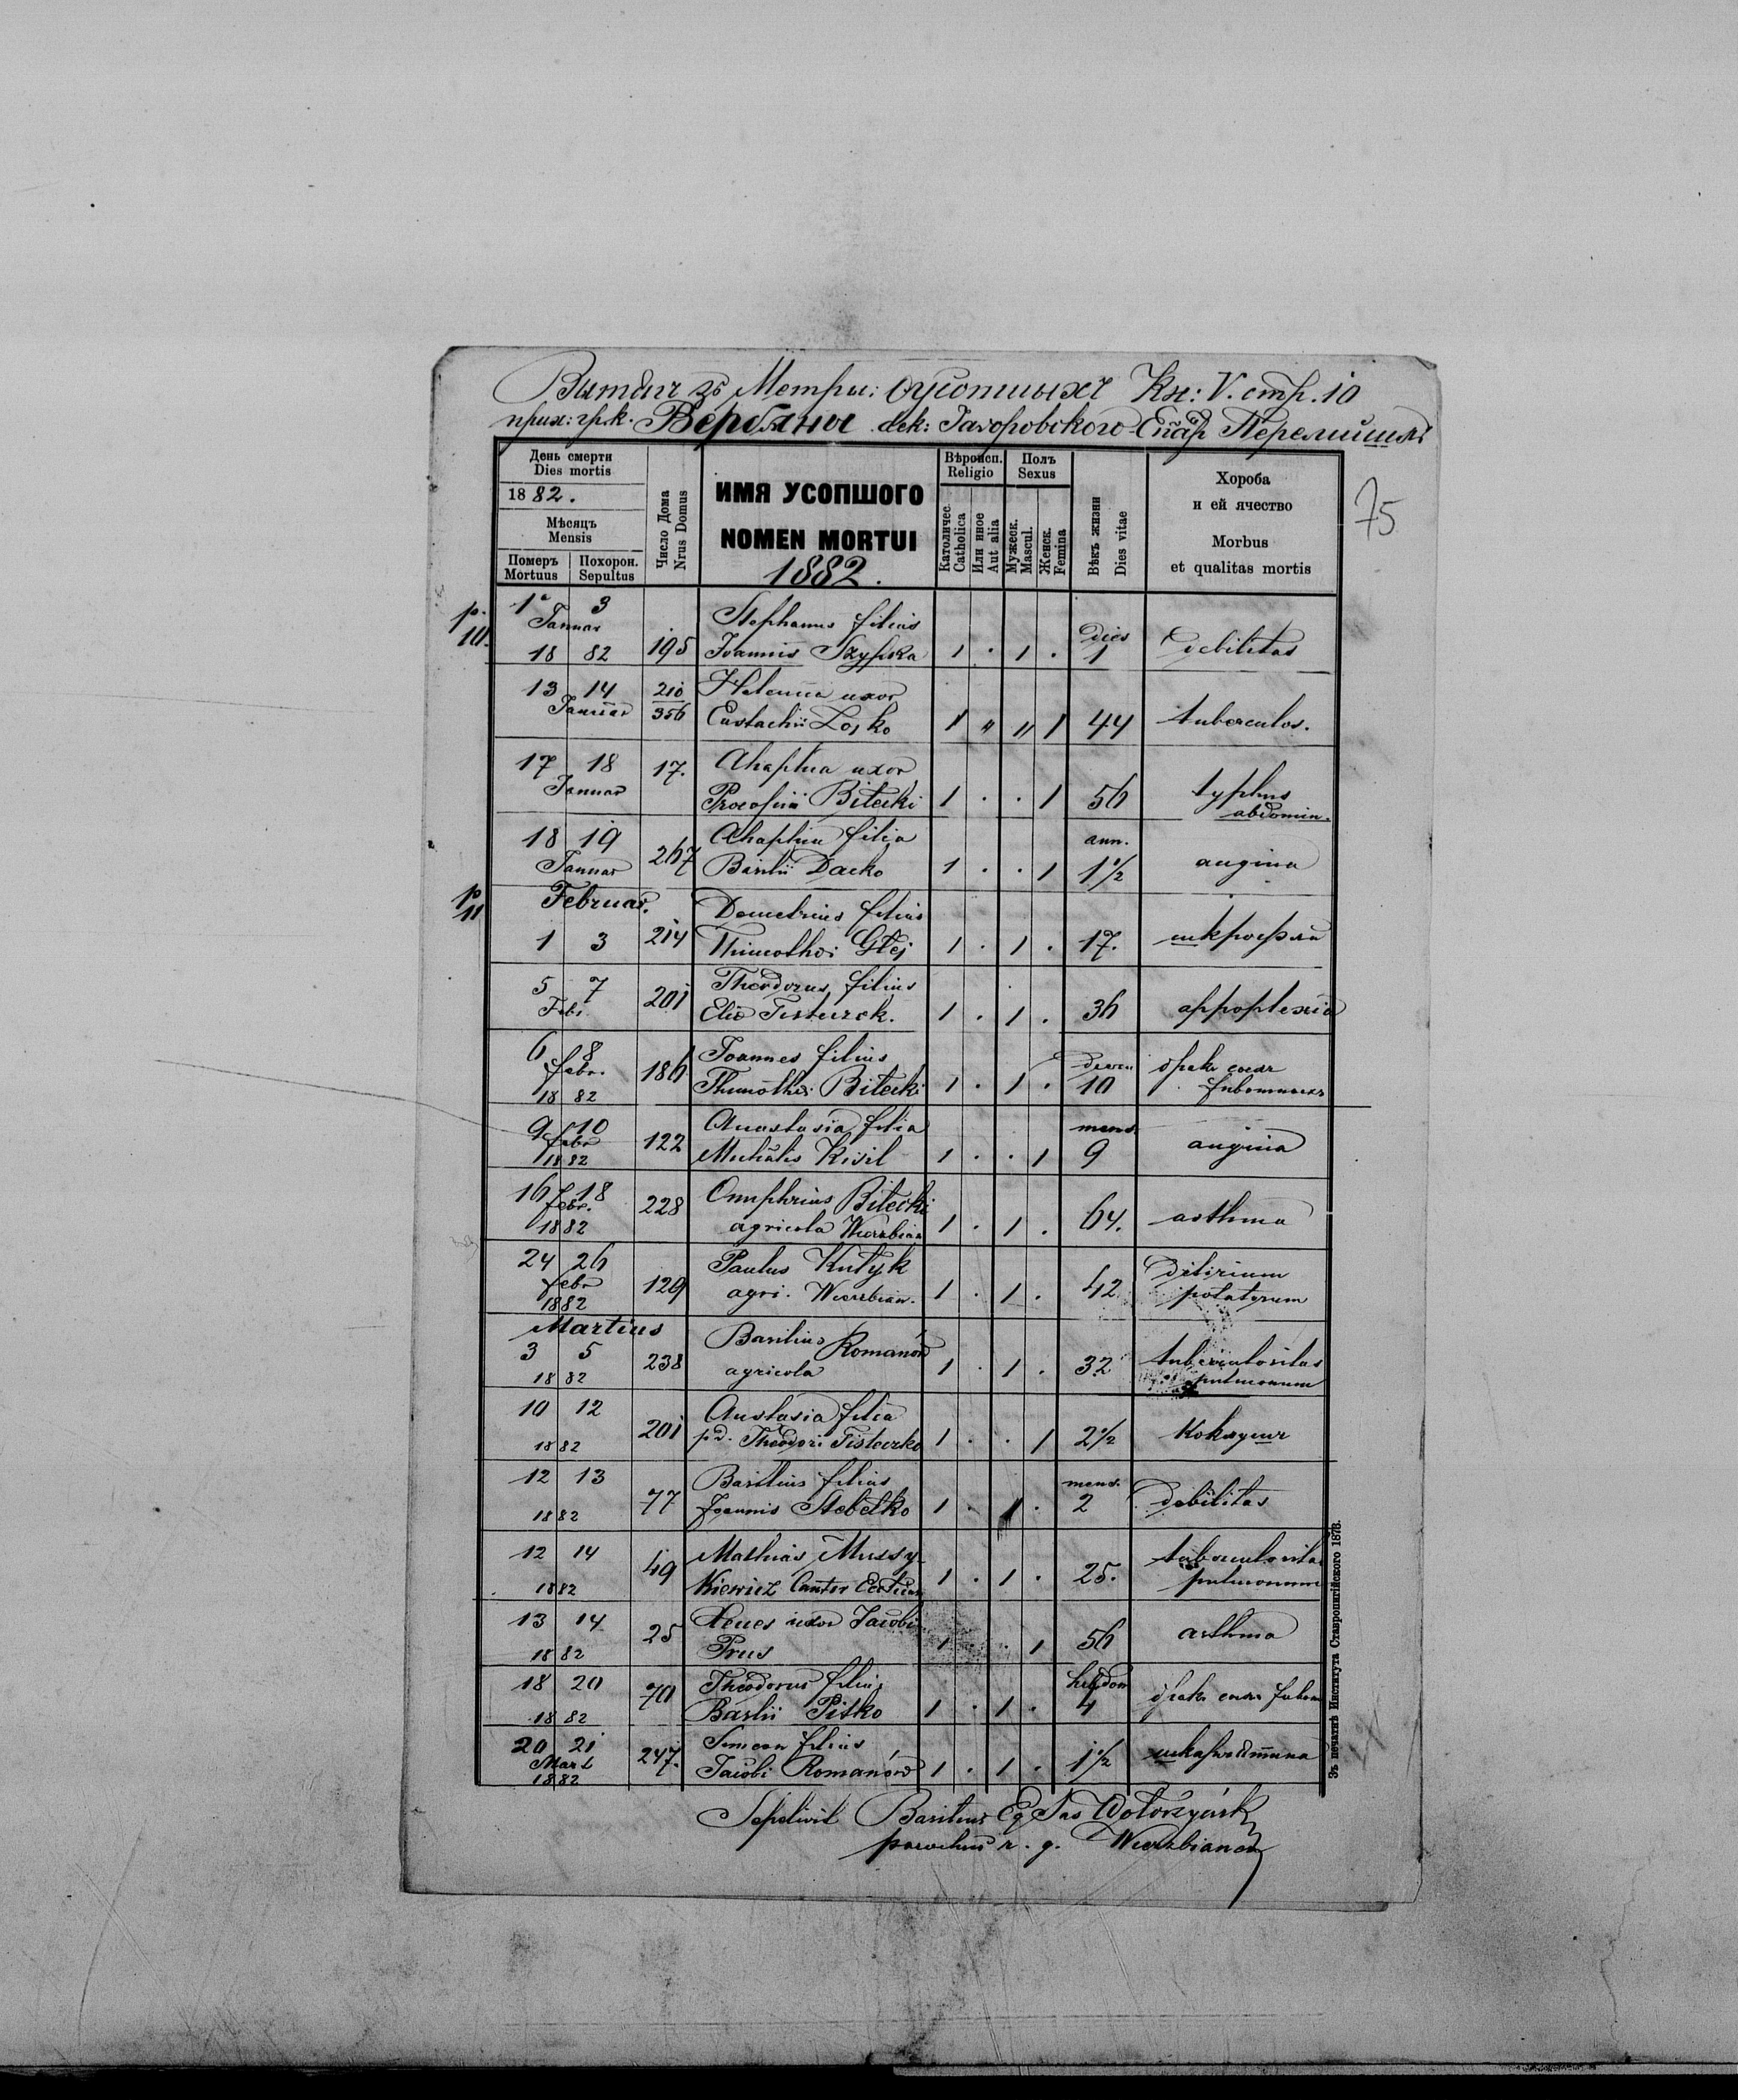 Вытягъ зъ Метры: Оусопшыхъ Кн: V. стр. 10
прих: гр.к. Вербяны дек: Яворовского Епар Перемышль
75
День смерти
Dies mortis
1882.
Мѣсяцъ
Mensis
Померъ Похорон.
Mortuus Sepultus
Число Дома
Nrus Domus
ИМЯ УСОПШОГО
NOMEN MORTUI
1882.
Вѣроисп.
Religio
Католичес.
Catholica
Или иное
Aut alia
Полъ
Sexus
Мужеск.
Mascul.
Женск.
Femina
Вѣкъ жизни
Dies vitae
Хороба
и ей ячество
Morbus
et qualitas mortis
p. 10.
1 3 Stephanus filius
Januar dies
18 82 195 Joannis 1 . 1 . 1 Debilitas
13 14 210 Helena uxor
Januar 356 Eustachii Losko 1 " " 1 44 tuberculos.
17 18 17. Ahaphia uxor
Januar Procopii Bilecki 1 . . 1 56 typhus
abdomin.
18 19 267 Ahaphia filia ann.
Januar Basilii Dacko 1 . . 1 1 1/2 angina
p. 11
Februar. Demetrius filius
1 3 214 Thimothei Głej 1 . 1 . 17.
5 7 201 Theodorus filius
Febr. Eliae 1 . 1 . 36 appoplexia
6 8 186 Joannes filius
febr. Thimothei Bilecki 1 . 1 . 10
18 82
9 10 122 Anastasia filia mens.
febr Michaelis Kisil 1 . . 1 9 angina
18 82
16 18 228 Onuphrius Bilecki
febr. agricola Wierzbian 1 . 1 . 64. asthma
1882
24 26 129 Paulus Kułyk Delirium
febr agri. Wierzbian. 1 . 1 . 42 potatorum
1882
Martius Basilius Romanów
3 5 238 agricola 1 . 1 . 32 tuberculositas
18 82 pulmonum
10 12 201 Anstasia filia
18 82 Theodori 1 . . 1 2 1/2 коклушъ
12 13 77 Basilius filius mens.
18 82 Joannis Stebelko 1 . 1 . 2 Debilitas
12 14 49 Mathias Mussy-
1882 kiewicz Cantor 1 . 1 . 25. tuberculositas
pulmonum
13 14 25 uxor Jacobi
18 82 Prus 1 . . 1 56 asthma
18 20 70 Theodorus filius hebdom
18 82 Basilii Pitko 1 . 1 . 4
20 21 247. Simeon filius
Mart Jacobi Romanów 1 . 1 . 1 1/2
1882
Sepelivit Basilius Eq Sas
parochus r. g. Wierzbianen
Зъ печатнѣ Института Ставропигійского 1878.